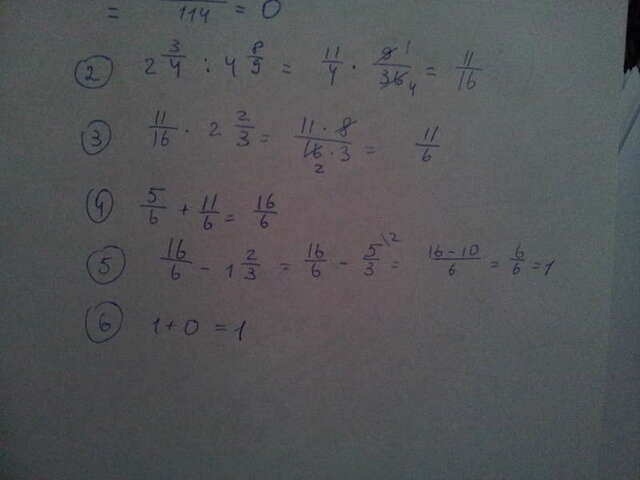 = /114 = 0
② 2 3/4 : 4 8/9 = 11/4 · 9 1/36 4 = 11/16
③ 11/16 · 2 2/3 = 11 · 8/16 · 3 2 = 11/6
④ 5/6 + 11/6 = 16/6
⑤ 16/6 - 1 2/3 = 16/6 - 5/3 \2 = 16-10/6 = 6/6 = 1
⑥ 1+0 = 1